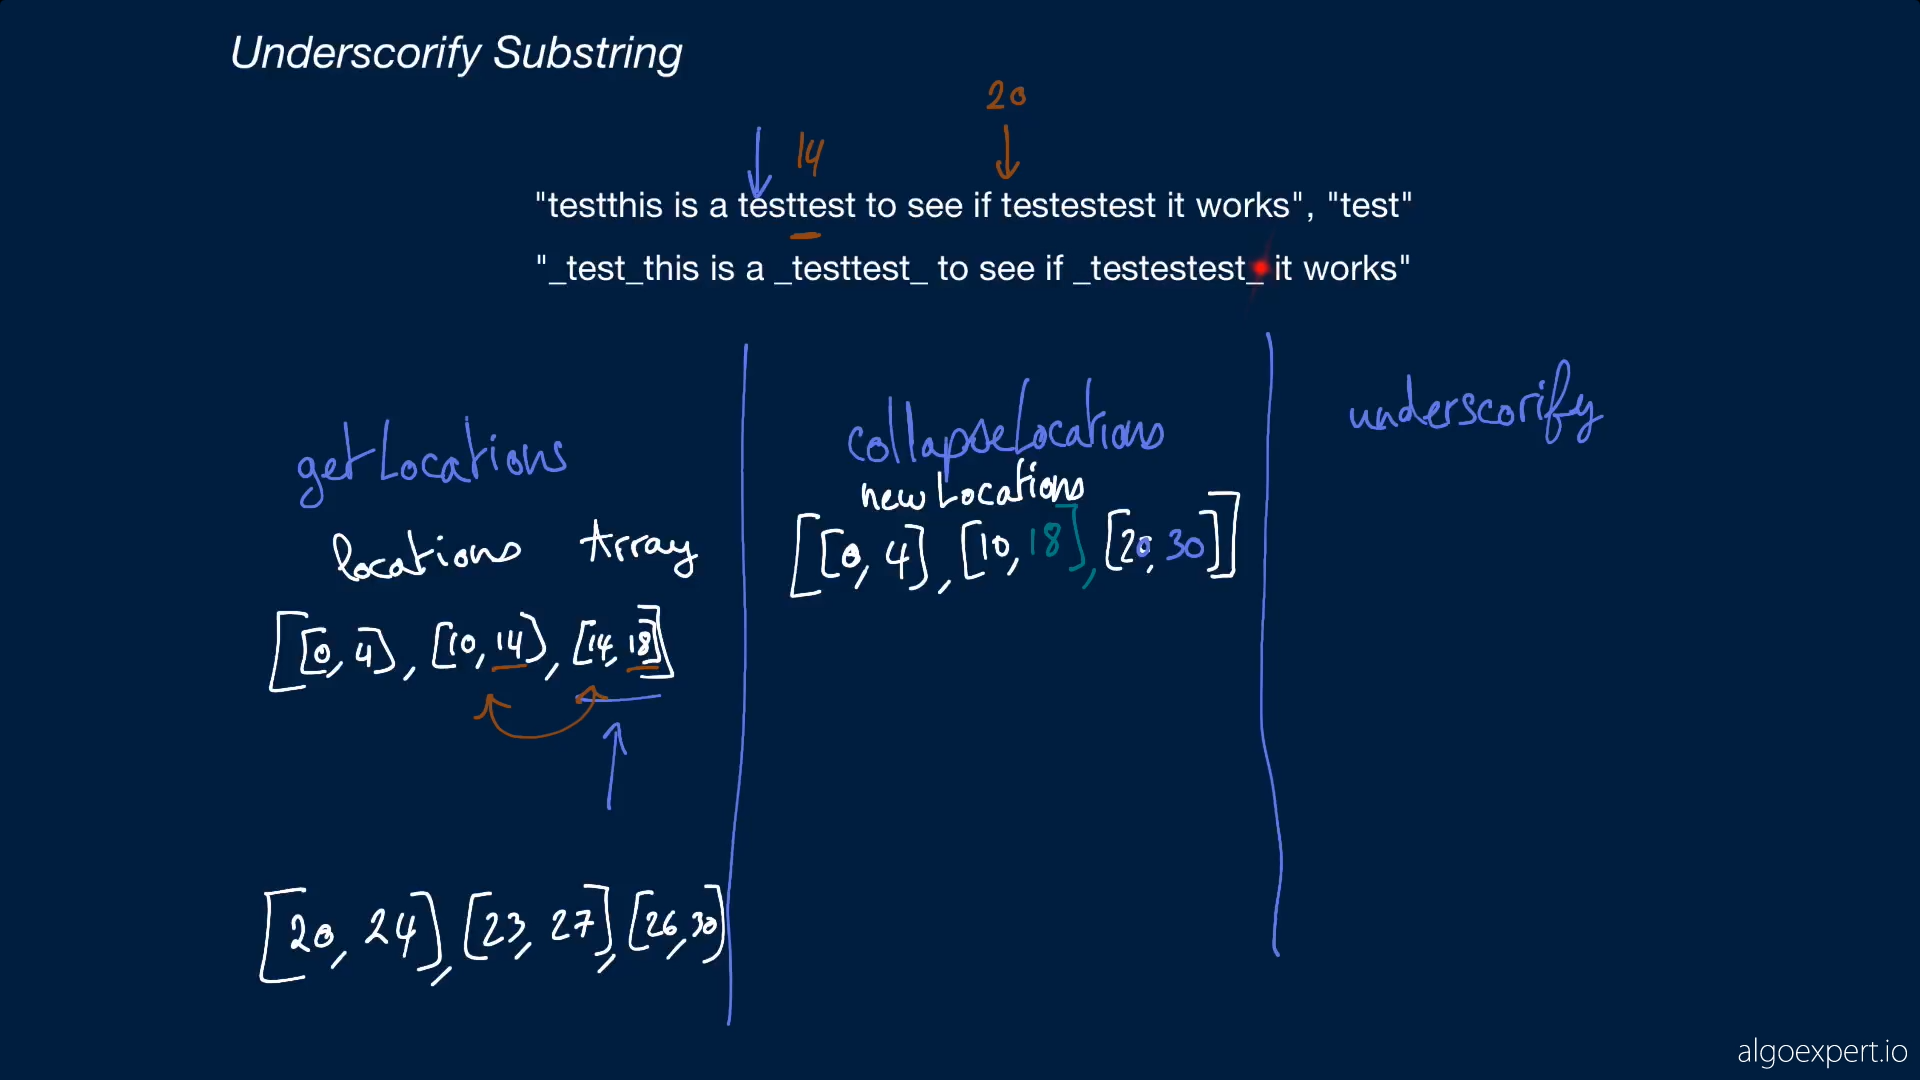 Underscorify Substring
20
14
"testthis is a testtest to see if testestest it works", "test"
"_test_this is a _testtest_ to see if _testestest_ it works"
getLocations
locations Array
[[0, 4], [10, 14], [14, 18]]
[20, 24], [23, 27], [26, 30]
collapseLocations
newLocations
[[0, 4], [10, 18], [20, 30]]
underscorify
algoexpert.io